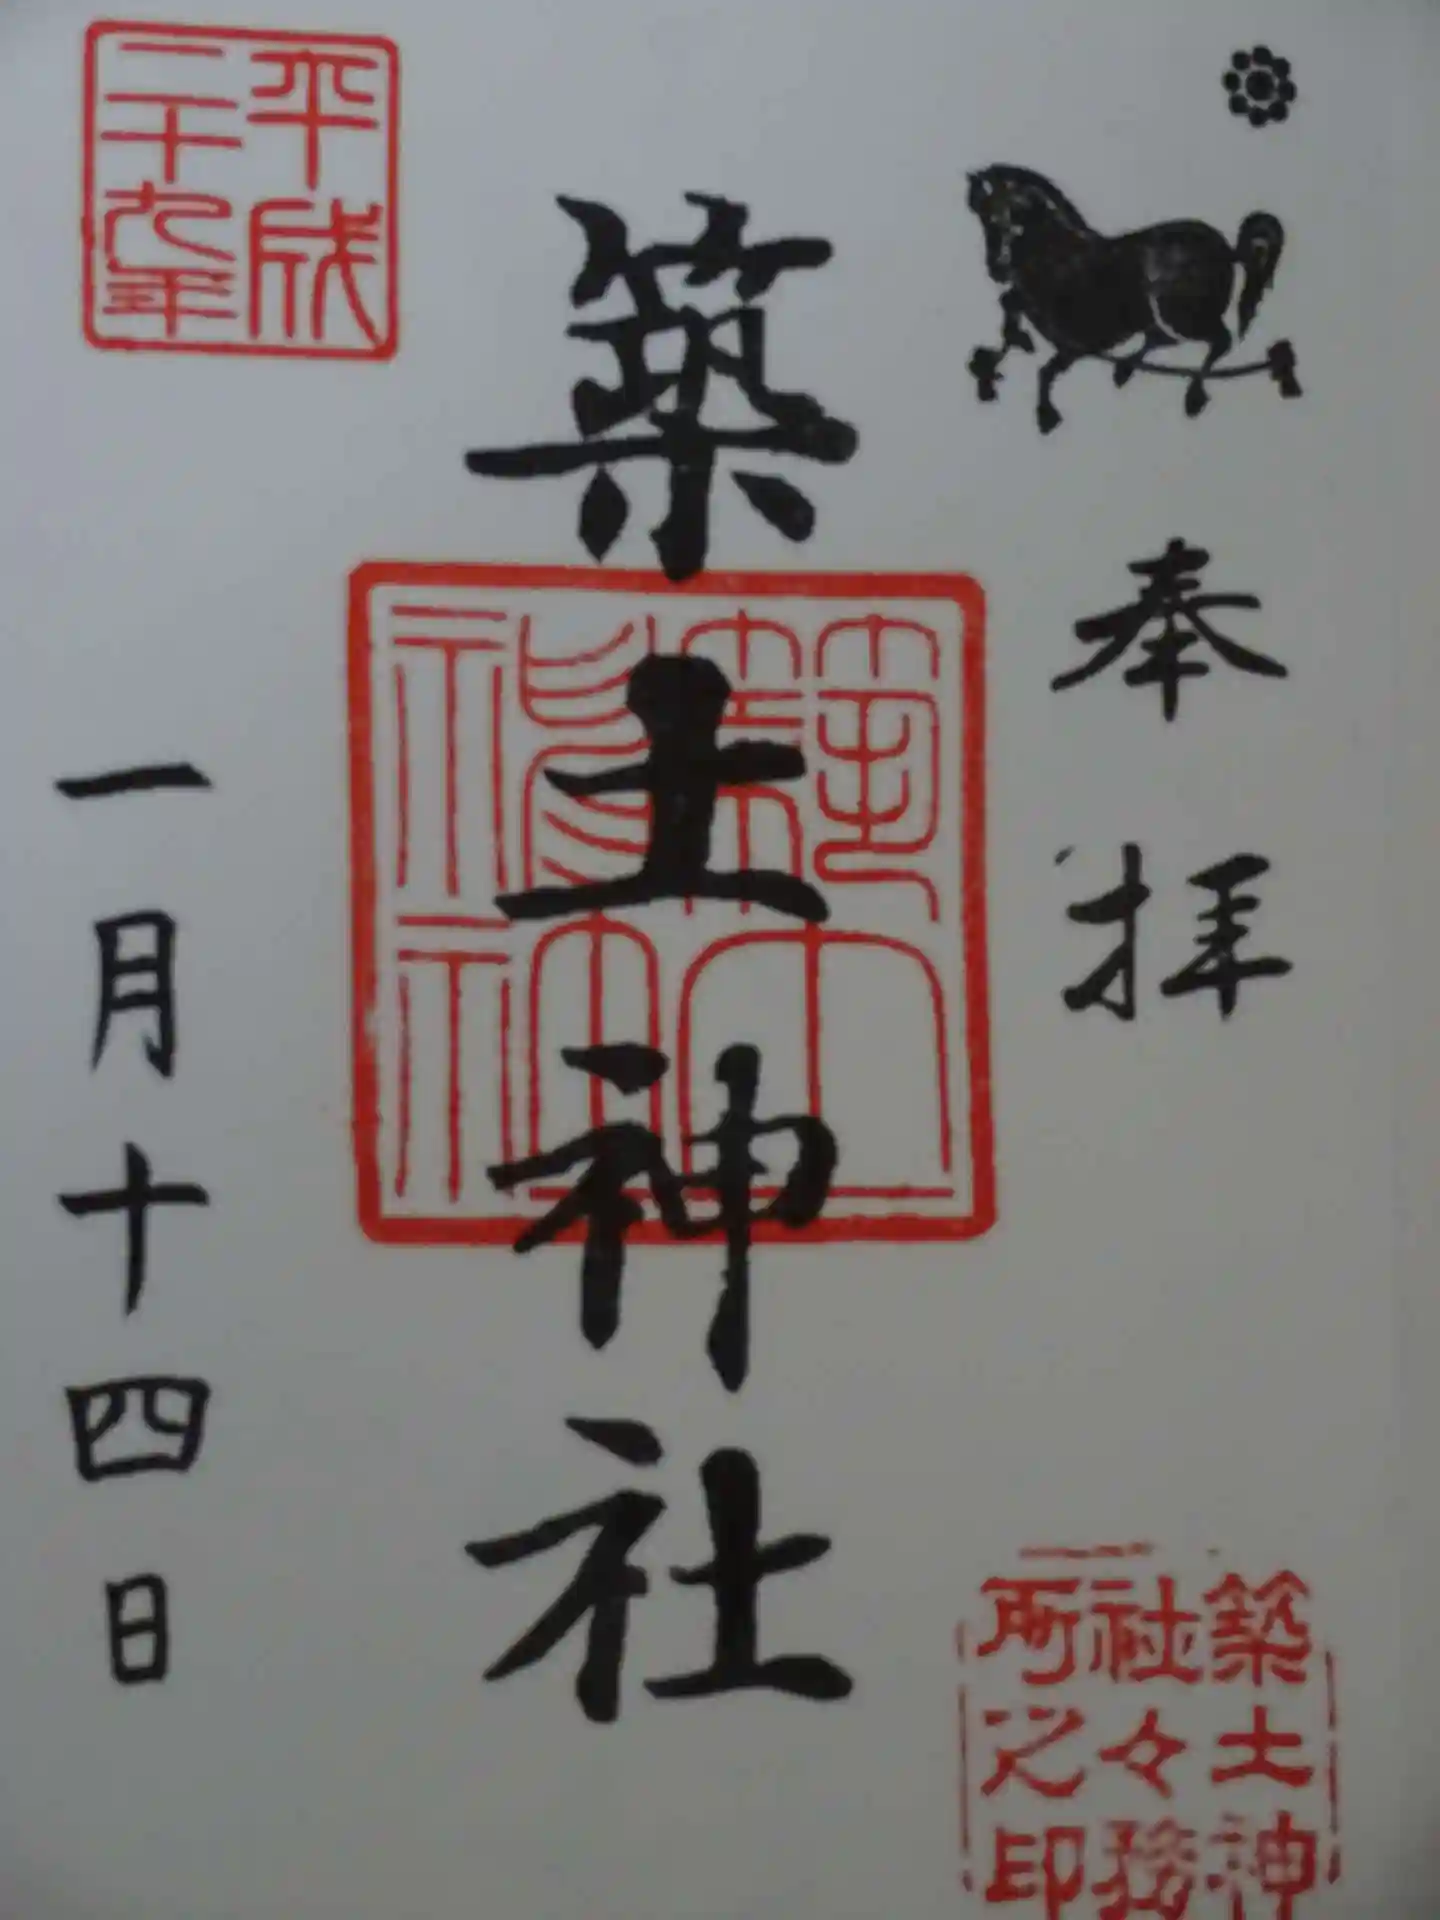 奉拝
築土神社
築土神社
平成
二十九年
一月十四日
築土神
社々務
所之印